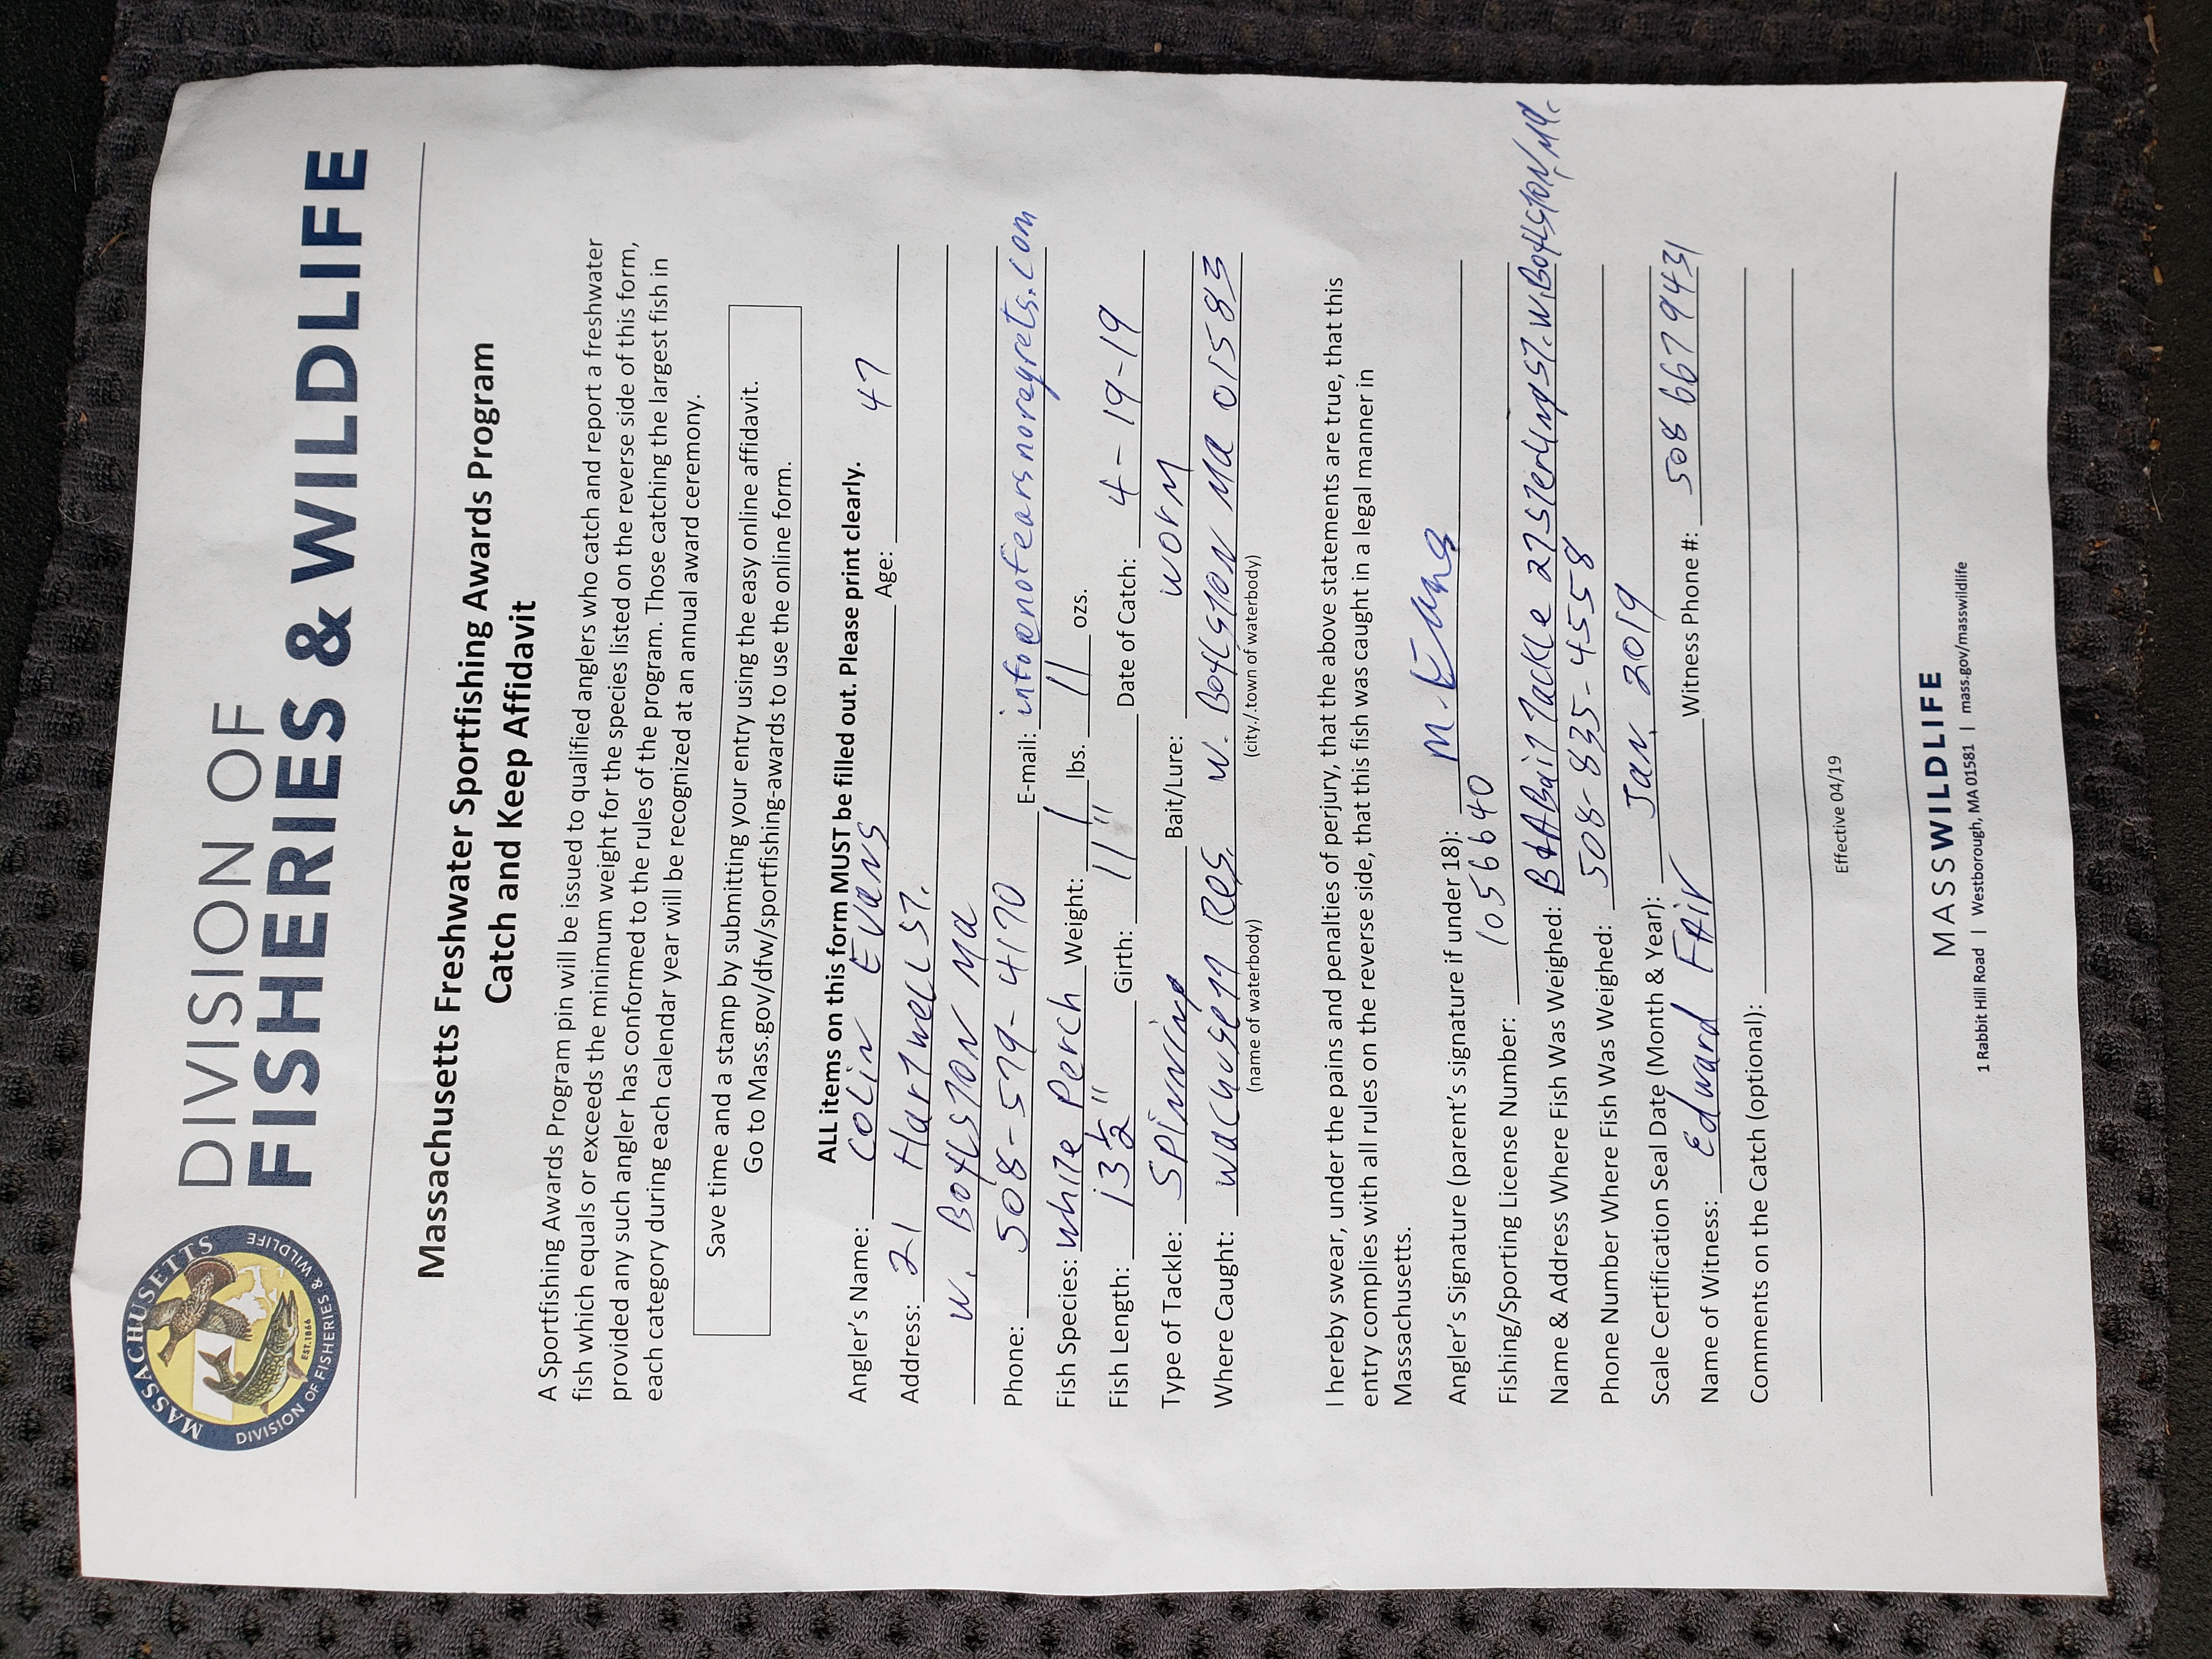 MASSACHUSETTS
DIVISION OF FISHERIES & WILDLIFE
EST.1866
DIVISION OF
FISHERIES & WILDLIFE
Massachusetts Freshwater Sportfishing Awards Program
Catch and Keep Affidavit
A Sportfishing Awards Program pin will be issued to qualified anglers who catch and report a freshwater
fish which equals or exceeds the minimum weight for the species listed on the reverse side of this form,
provided any such angler has conformed to the rules of the program. Those catching the largest fish in
each category during each calendar year will be recognized at an annual award ceremony.
Save time and a stamp by submitting your entry using the easy online affidavit.
Go to Mass.gov/dfw/sportfishing-awards to use the online form.
ALL items on this form MUST be filled out. Please print clearly.
Angler's Name: Colin Evans Age: 47
Address: 21 Hartwell ST.
W. Boylston Ma
Phone: 508-579-4170 E-mail: info@nofearsnoregrets.com
Fish Species: White Perch Weight: 1 lbs. 11 ozs.
Fish Length: 13 1/2" Girth: 11" Date of Catch: 4-19-19
Type of Tackle: Spinning Bait/Lure: worm
Where Caught: Wachusett Res. W. Boylston Ma 01583
(name of waterbody) (city./.town of waterbody)
I hereby swear, under the pains and penalties of perjury, that the above statements are true, that this
entry complies with all rules on the reverse side, that this fish was caught in a legal manner in
Massachusetts.
Angler's Signature (parent's signature if under 18): M. Evans
Fishing/Sporting License Number: 1056640
Name & Address Where Fish Was Weighed: B&A Bait Tackle 27 Sterling ST. W. Boylston/Ma.
Phone Number Where Fish Was Weighed: 508-835-4558
Scale Certification Seal Date (Month & Year): Jan. 2019
Name of Witness: Edward FAir Witness Phone #: 508 6679431
Comments on the Catch (optional):
Effective 04/19
MASSWILDLIFE
1 Rabbit Hill Road | Westborough, MA 01581 | mass.gov/masswildlife